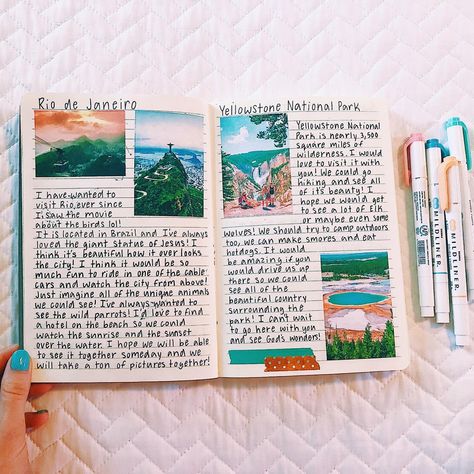 Rio de Janeiro
I have wanted to
visit Rio, ever since
I saw the movie
about the birds lol!
It is located in Brazil and I've always
loved the giant statue of Jesus! I
think it's beautiful how it over looks
the city! I think it would be so
much fun to ride in one of the cable
cars and watch the city from above!
Just imagine all of the unique animals
we could see! I've always wanted to
see the wild parrots! I'd love to find
a hotel on the beach so we could
watch the sunrise and the sunset
over the water. I hope we will be able
to see it together someday and we
will take a ton of pictures together!
Yellowstone National Park
Yellowstone National
Park is nearly 3,500
square miles of
wilderness. I would
love to visit it with
you! We could go
hiking and see all
of it's beauty! I
hope we would get
to see a lot of Elk
or maybe even some
wolves! We should try to camp outdoors
too, we can make smores and eat
hotdogs. It would
be amazing if you
would drive us up
there so we could
see all of the
beautiful country
surrounding the
park! I can't wait
to go here with you
and see God's wonders!
MILDLINER
MILDLINER
MILDLINER